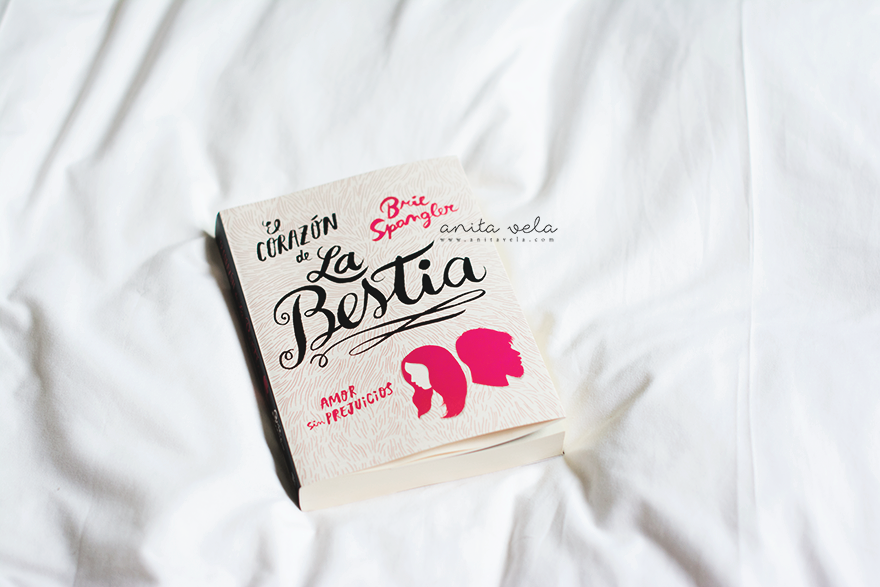 El
CORAZÓN
de La
Bestia
Brie
Spangler
anita vela
www.anitavela.com
AMOR
sin PREJUICIOS